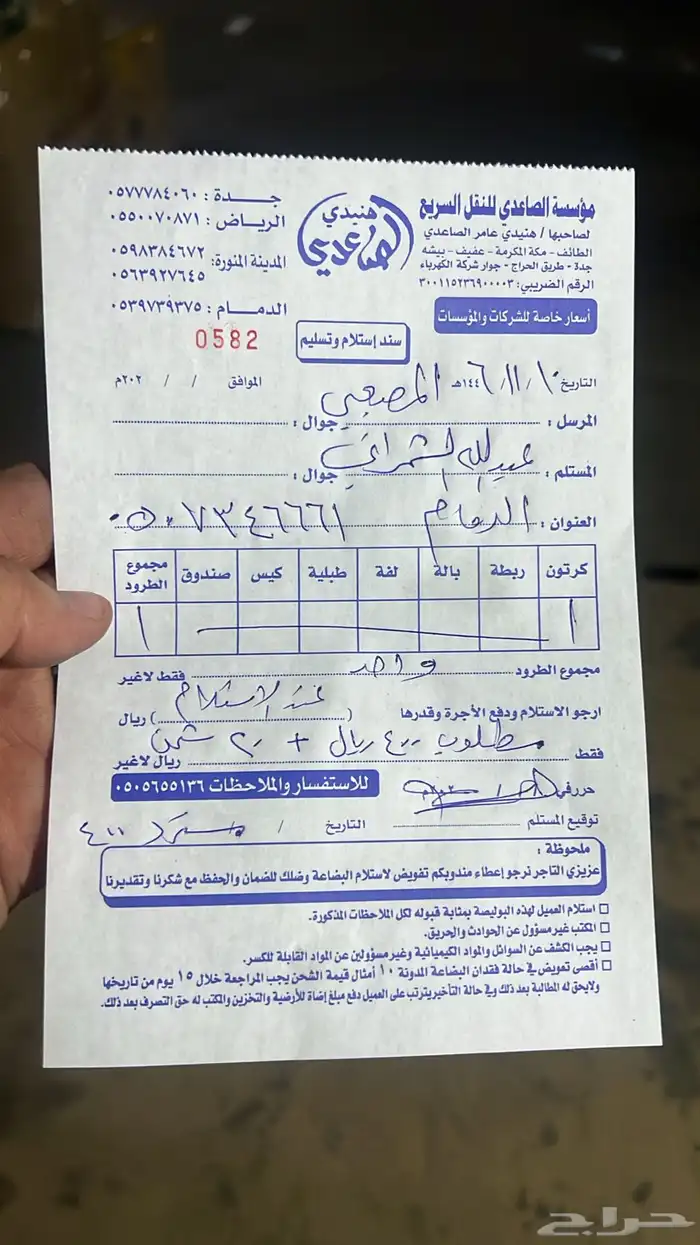 مؤسسة الصاعدي للنقل السريع
لصاحبها / هنيدي عامر الصاعدي
الطائف - مكة المكرمة - عفيف - بيشه
جدة - طريق الحراج - جوار شركة الكهرباء
الرقم الضريبي: ٣٠٠١١٥٢٣٦٩٠٠٠٠٣
أسعار خاصة للشركات والمؤسسات
هنيدي
الصاعدي
سند إستلام وتسليم
جـــدة : ٠٥٧٧٧٨٤٠٦٠
الرياض : ٠٥٥٠٠٧٠٨٧١
المدينة المنورة: ٠٥٩٨٣٨٤٦٧٢
٠٥٦٣٩٢٧٦٤٥
الدمـــام : ٠٥٣٩٧٣٩٣٧٥
0582
التاريخ ١٠ / ١١ / ١٤٤٦هـ الموافق / / ٢٠٢م
المرسل : المصعبي جوال :
المستلم : عبدالله الشمراني جوال :
العنوان : الدمام ٠٥٠٧٣٤٦٦٦١
كرتون ربطة بالة لفة طبلية كيس صندوق مجموع الطرود
١ ١
مجموع الطرود واحد فقط لاغير
ارجو الاستلام ودفع الأجرة وقدرها ( عند الاستلام ) ريال
فقط مطلوب ٤٠٠ ريال + ٢٠ شحن ريال لاغير
حرر في للاستفسار والملاحظات ٠٥٠٥٦٥٥١٣٦
توقيع المستلم التاريخ /
ملحوظة :
عزيزي التاجر نرجو إعطاء مندوبكم تفويض لاستلام البضاعة وضلك للضمان والحفظ مع شكرنا وتقديرنا
استلام العميل لهذه البوليصة بمثابة قبوله لكل الملاحظات المذكورة.
المكتب غير مسؤول عن الحوادث والحريق.
يجب الكشف عن السوائل والمواد الكيميائية وغير مسؤولين عن المواد القابلة للكسر.
أقصى تعويض في حالة فقدان البضاعة المدونة ١٠ أمثال قيمة الشحن يجب المراجعة خلال ١٥ يوم من تاريخها
ولايحق له المطالبة بعد ذلك وفي حالة التأخير يترتب على العميل دفع مبلغ إضافة للأرضية والتخزين والمكتب له حق التصرف بعد ذلك.
حراج